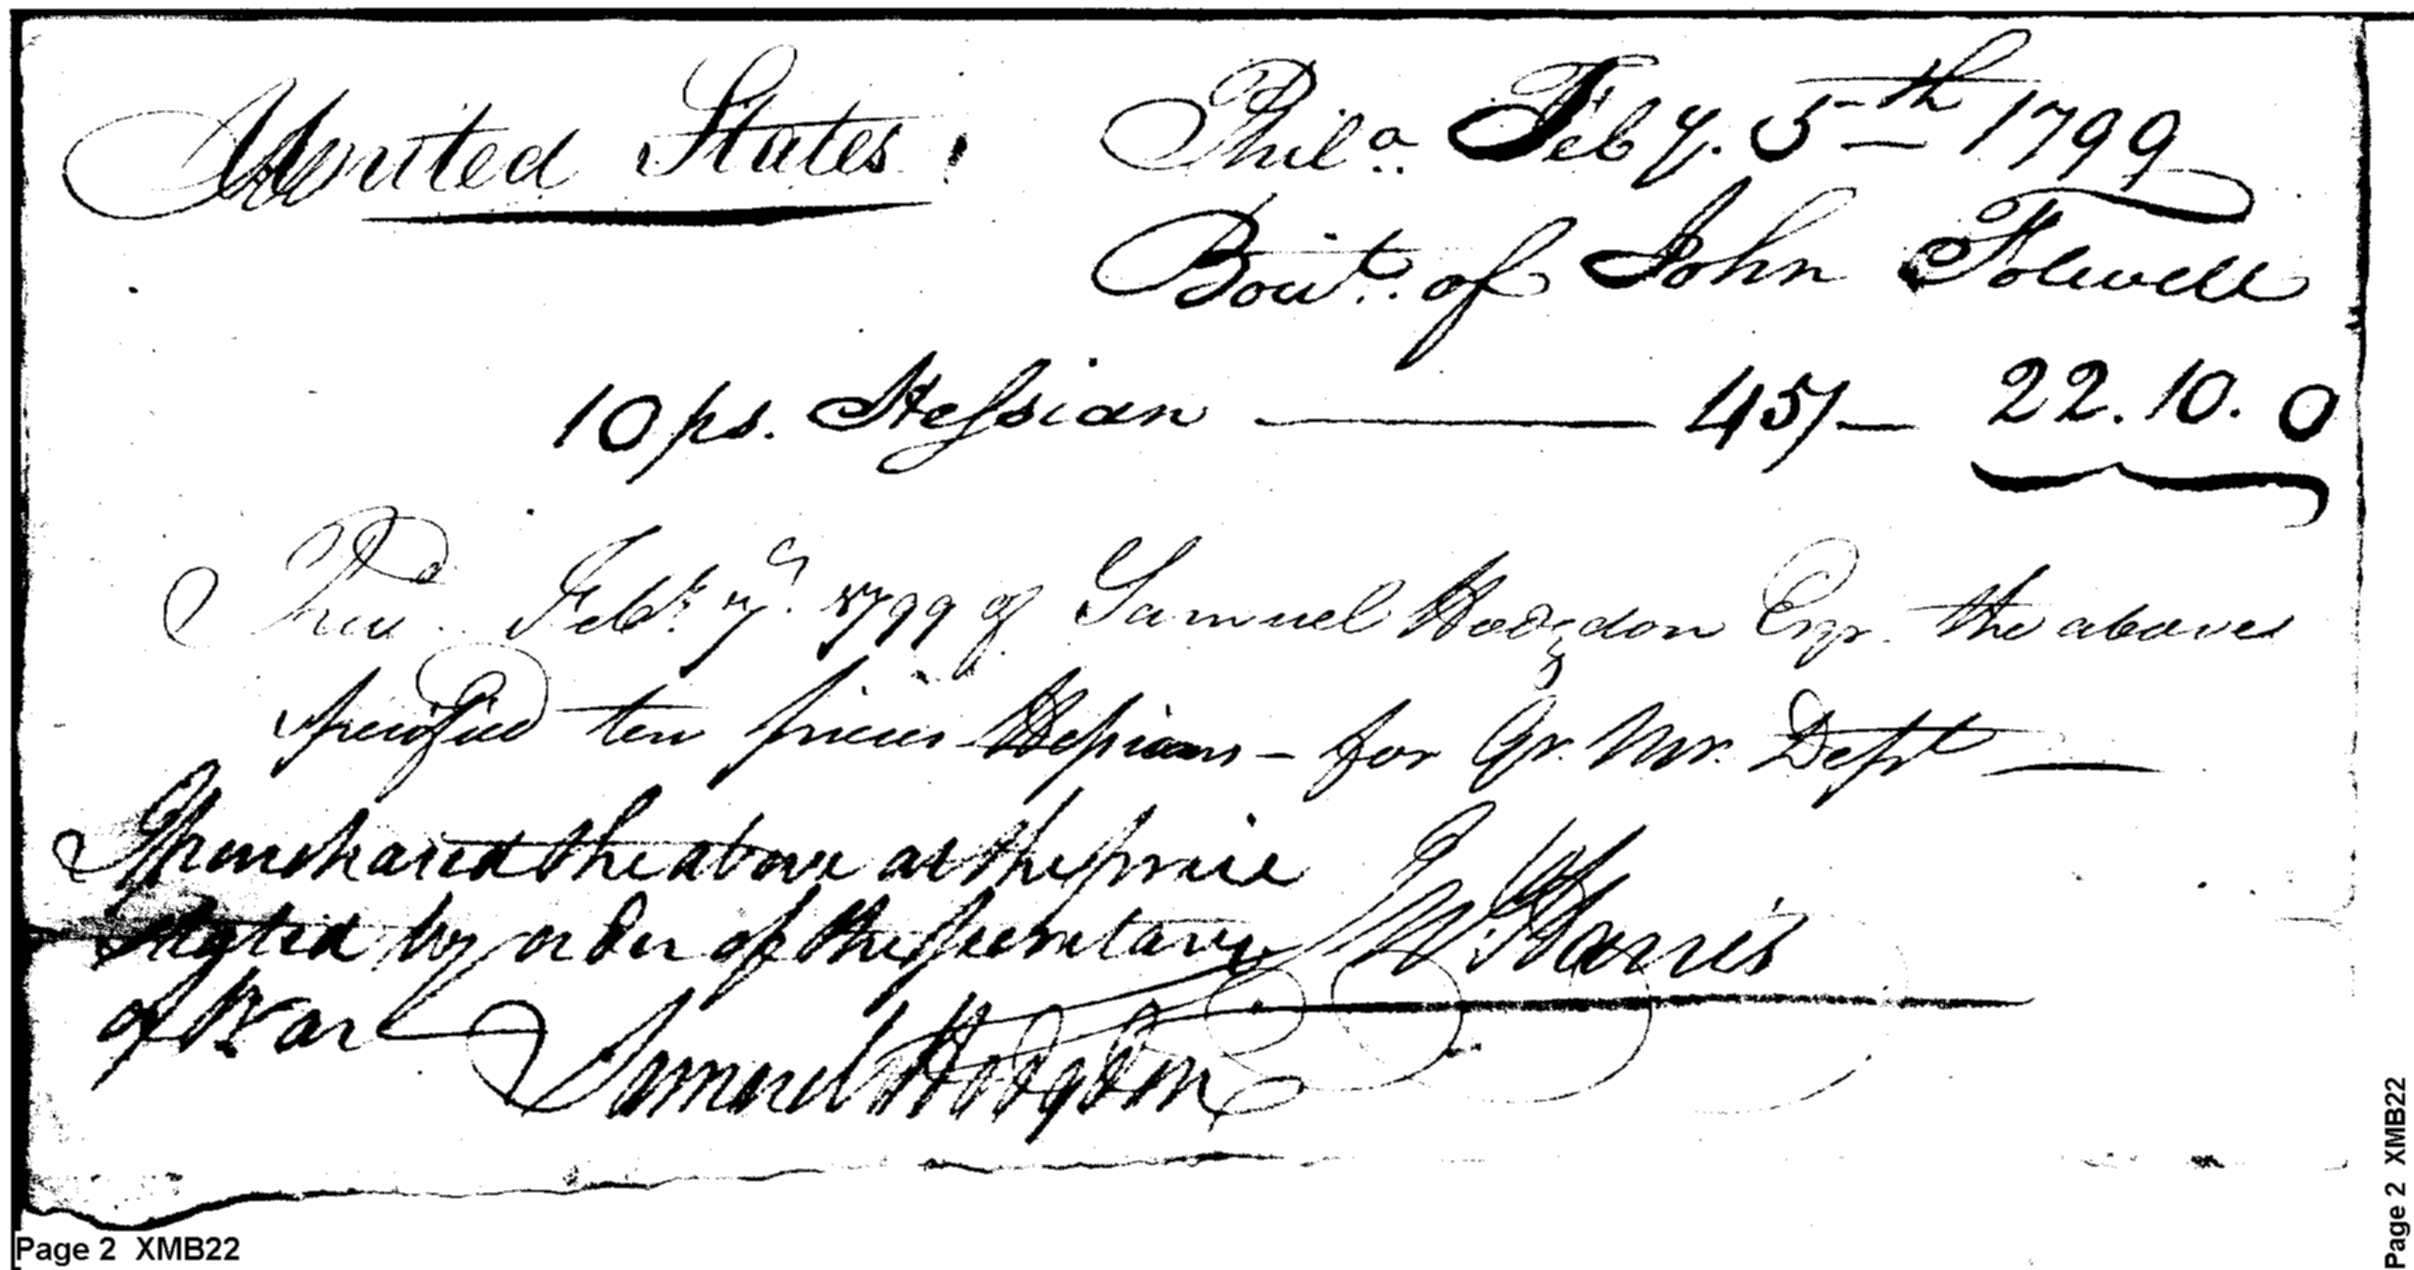 United States. Phila. Feby. 5th 1799
Bout. of John Folwell
10 ps. Hessian 45/— 22.10.0
Recd. Feby. 7th 1799 of Samuel Hodgdon Esqr. the above
specified ten pieces Hessians - for Qr. Mr. Dept
I purchased the above at the price
stated by order of the Secretary
of War
W. Harris
Samuel Hodgdon
Page 2 XMB22
Page 2 XMB22